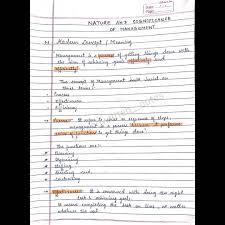 NATURE AND SIGNIFICANCE
OF MANAGEMENT
Modern Concept / Meaning
Management is a process of getting things done with
the aim of achieving goals effectively and
efficiently.
The concept of management
these terms:-
Process
Effectiveness
Process:- It refers to series or sequence of steps,
management is a process because it performs
series of functions to get things done.
The functions are:-
Planning
Organising
Staffing
Directing and
Controlling
Effectiveness:- It is concerned with doing the right
task & achieving goals.
It means completing the task on time, no matter
whatever the cost.